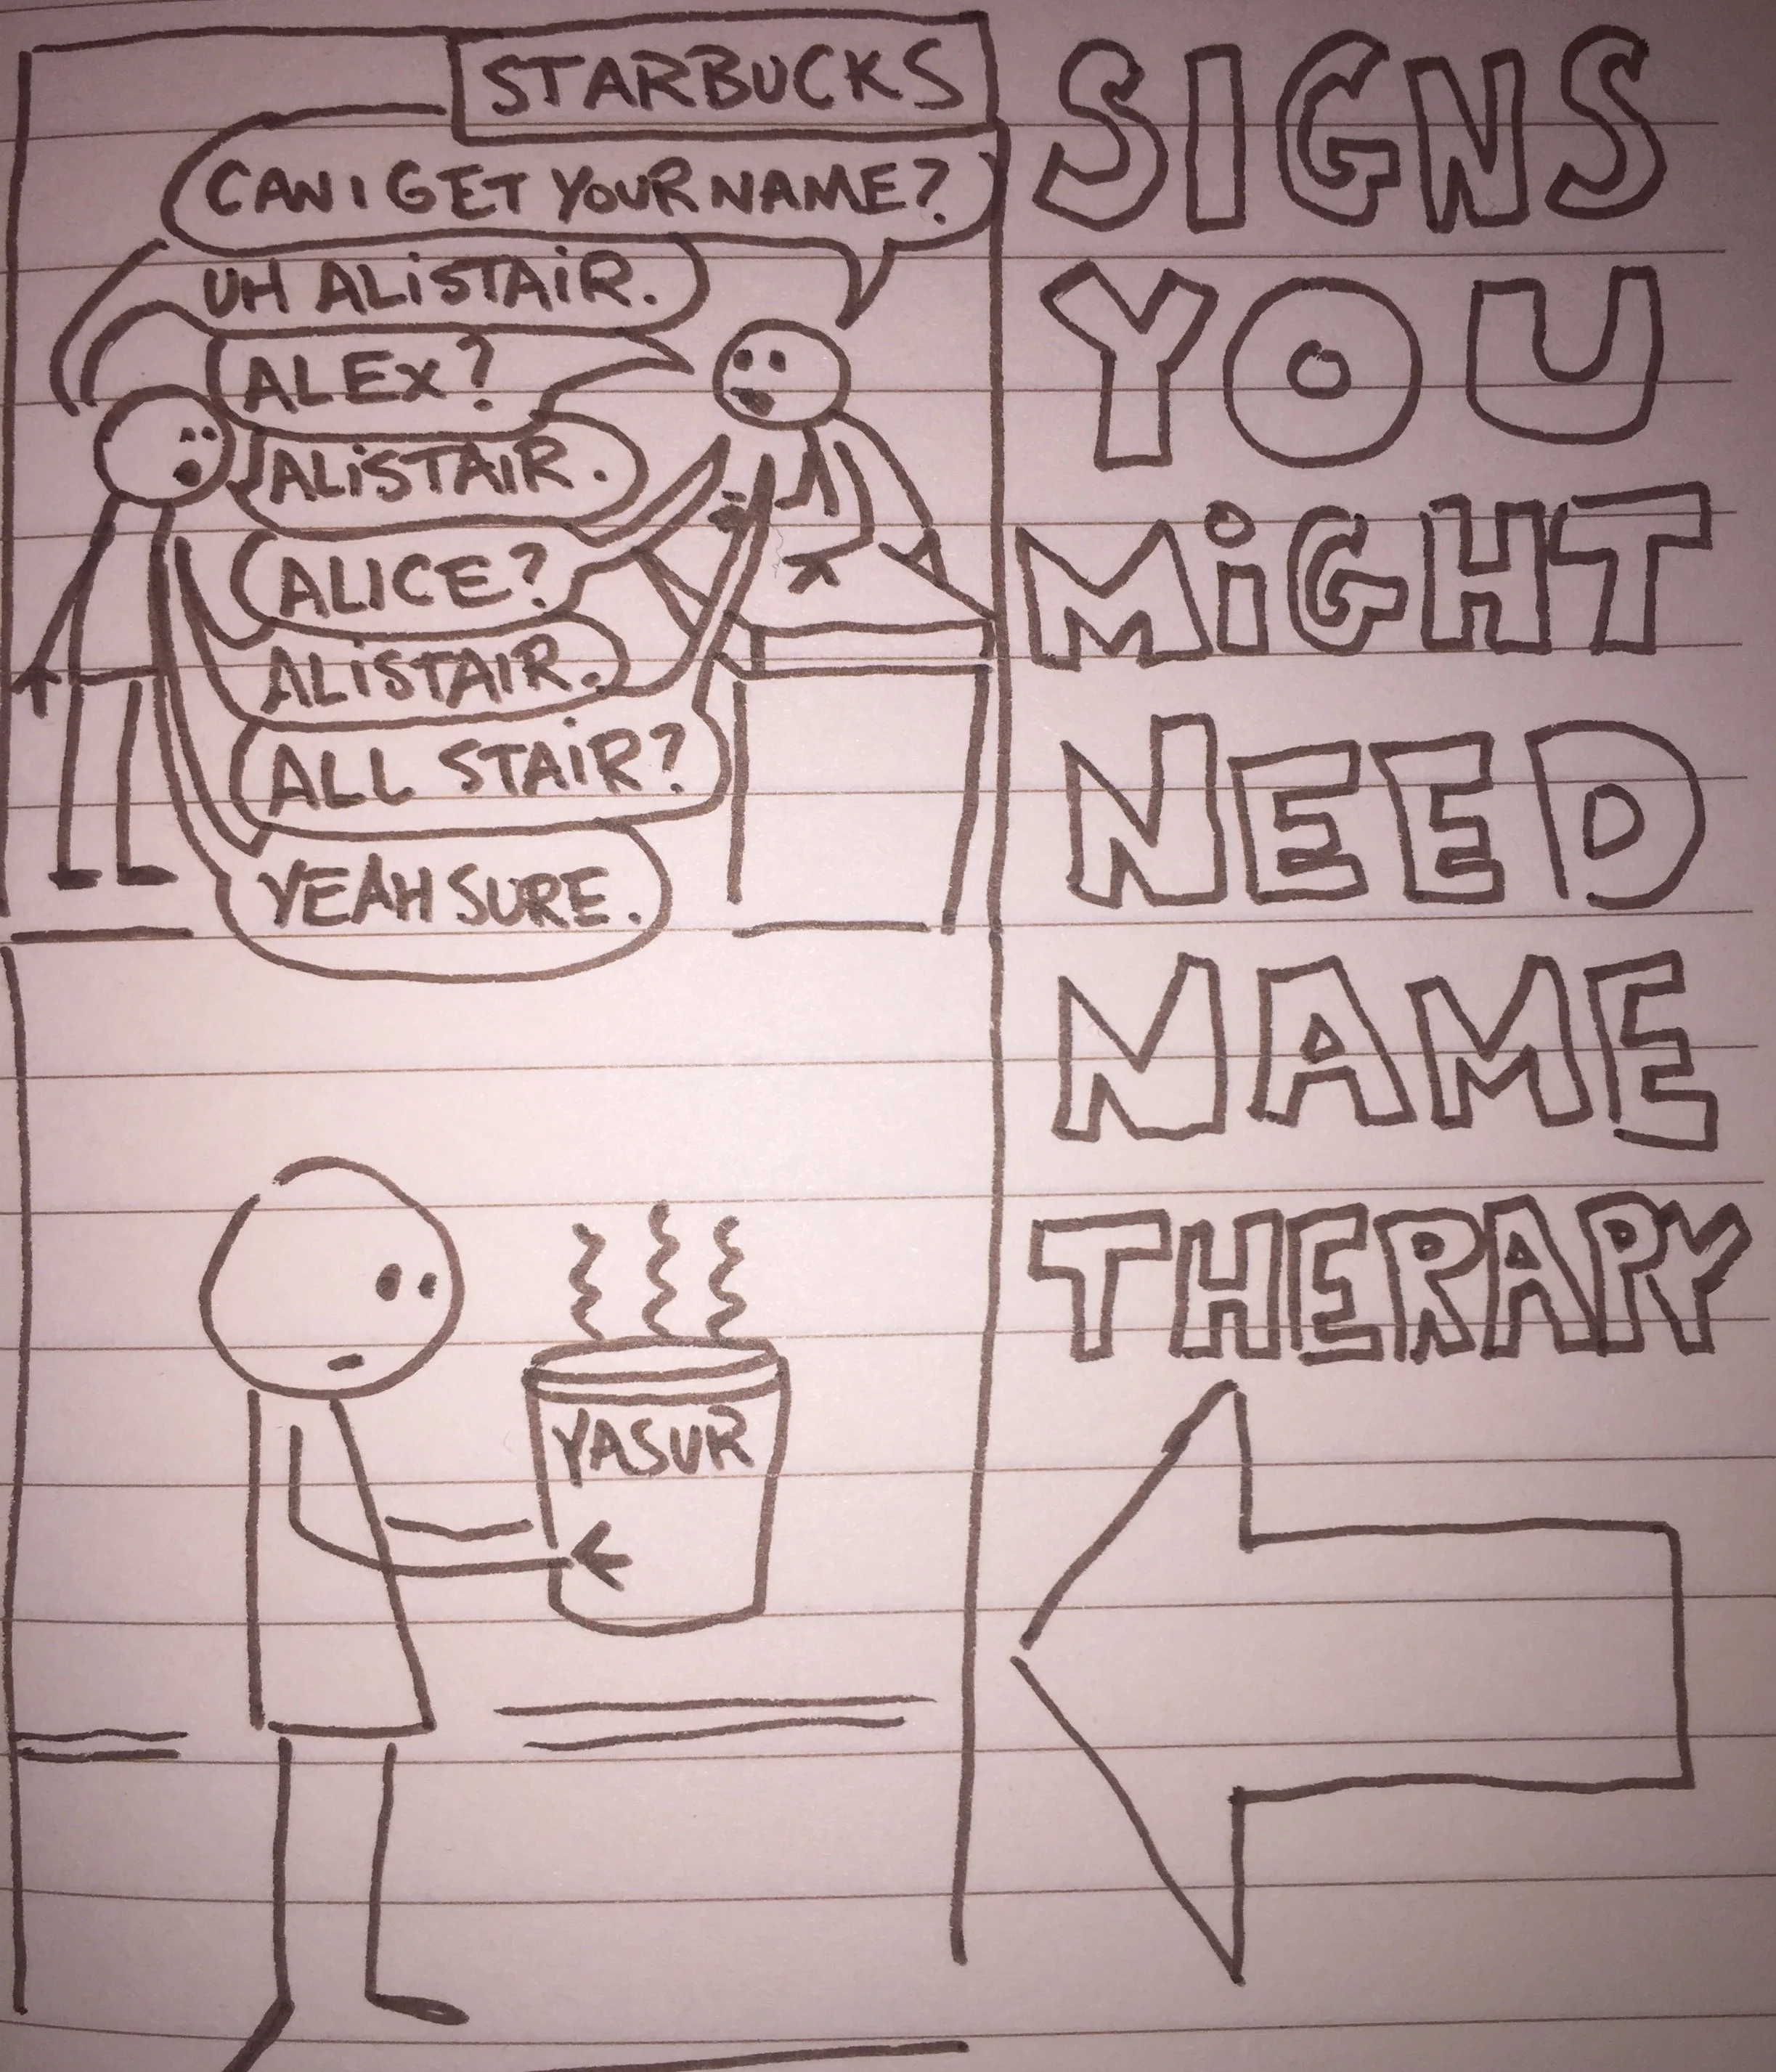 STARBUCKS
CAN I GET YOUR NAME?
UH ALiSTAiR.
ALEX?
ALiSTAIR.
ALICE?
ALiSTAIR.
ALL STAiR?
YEAH SURE.
YASUR
SIGNS
YOU
MiGHT
NEED
NAME
THERAPY